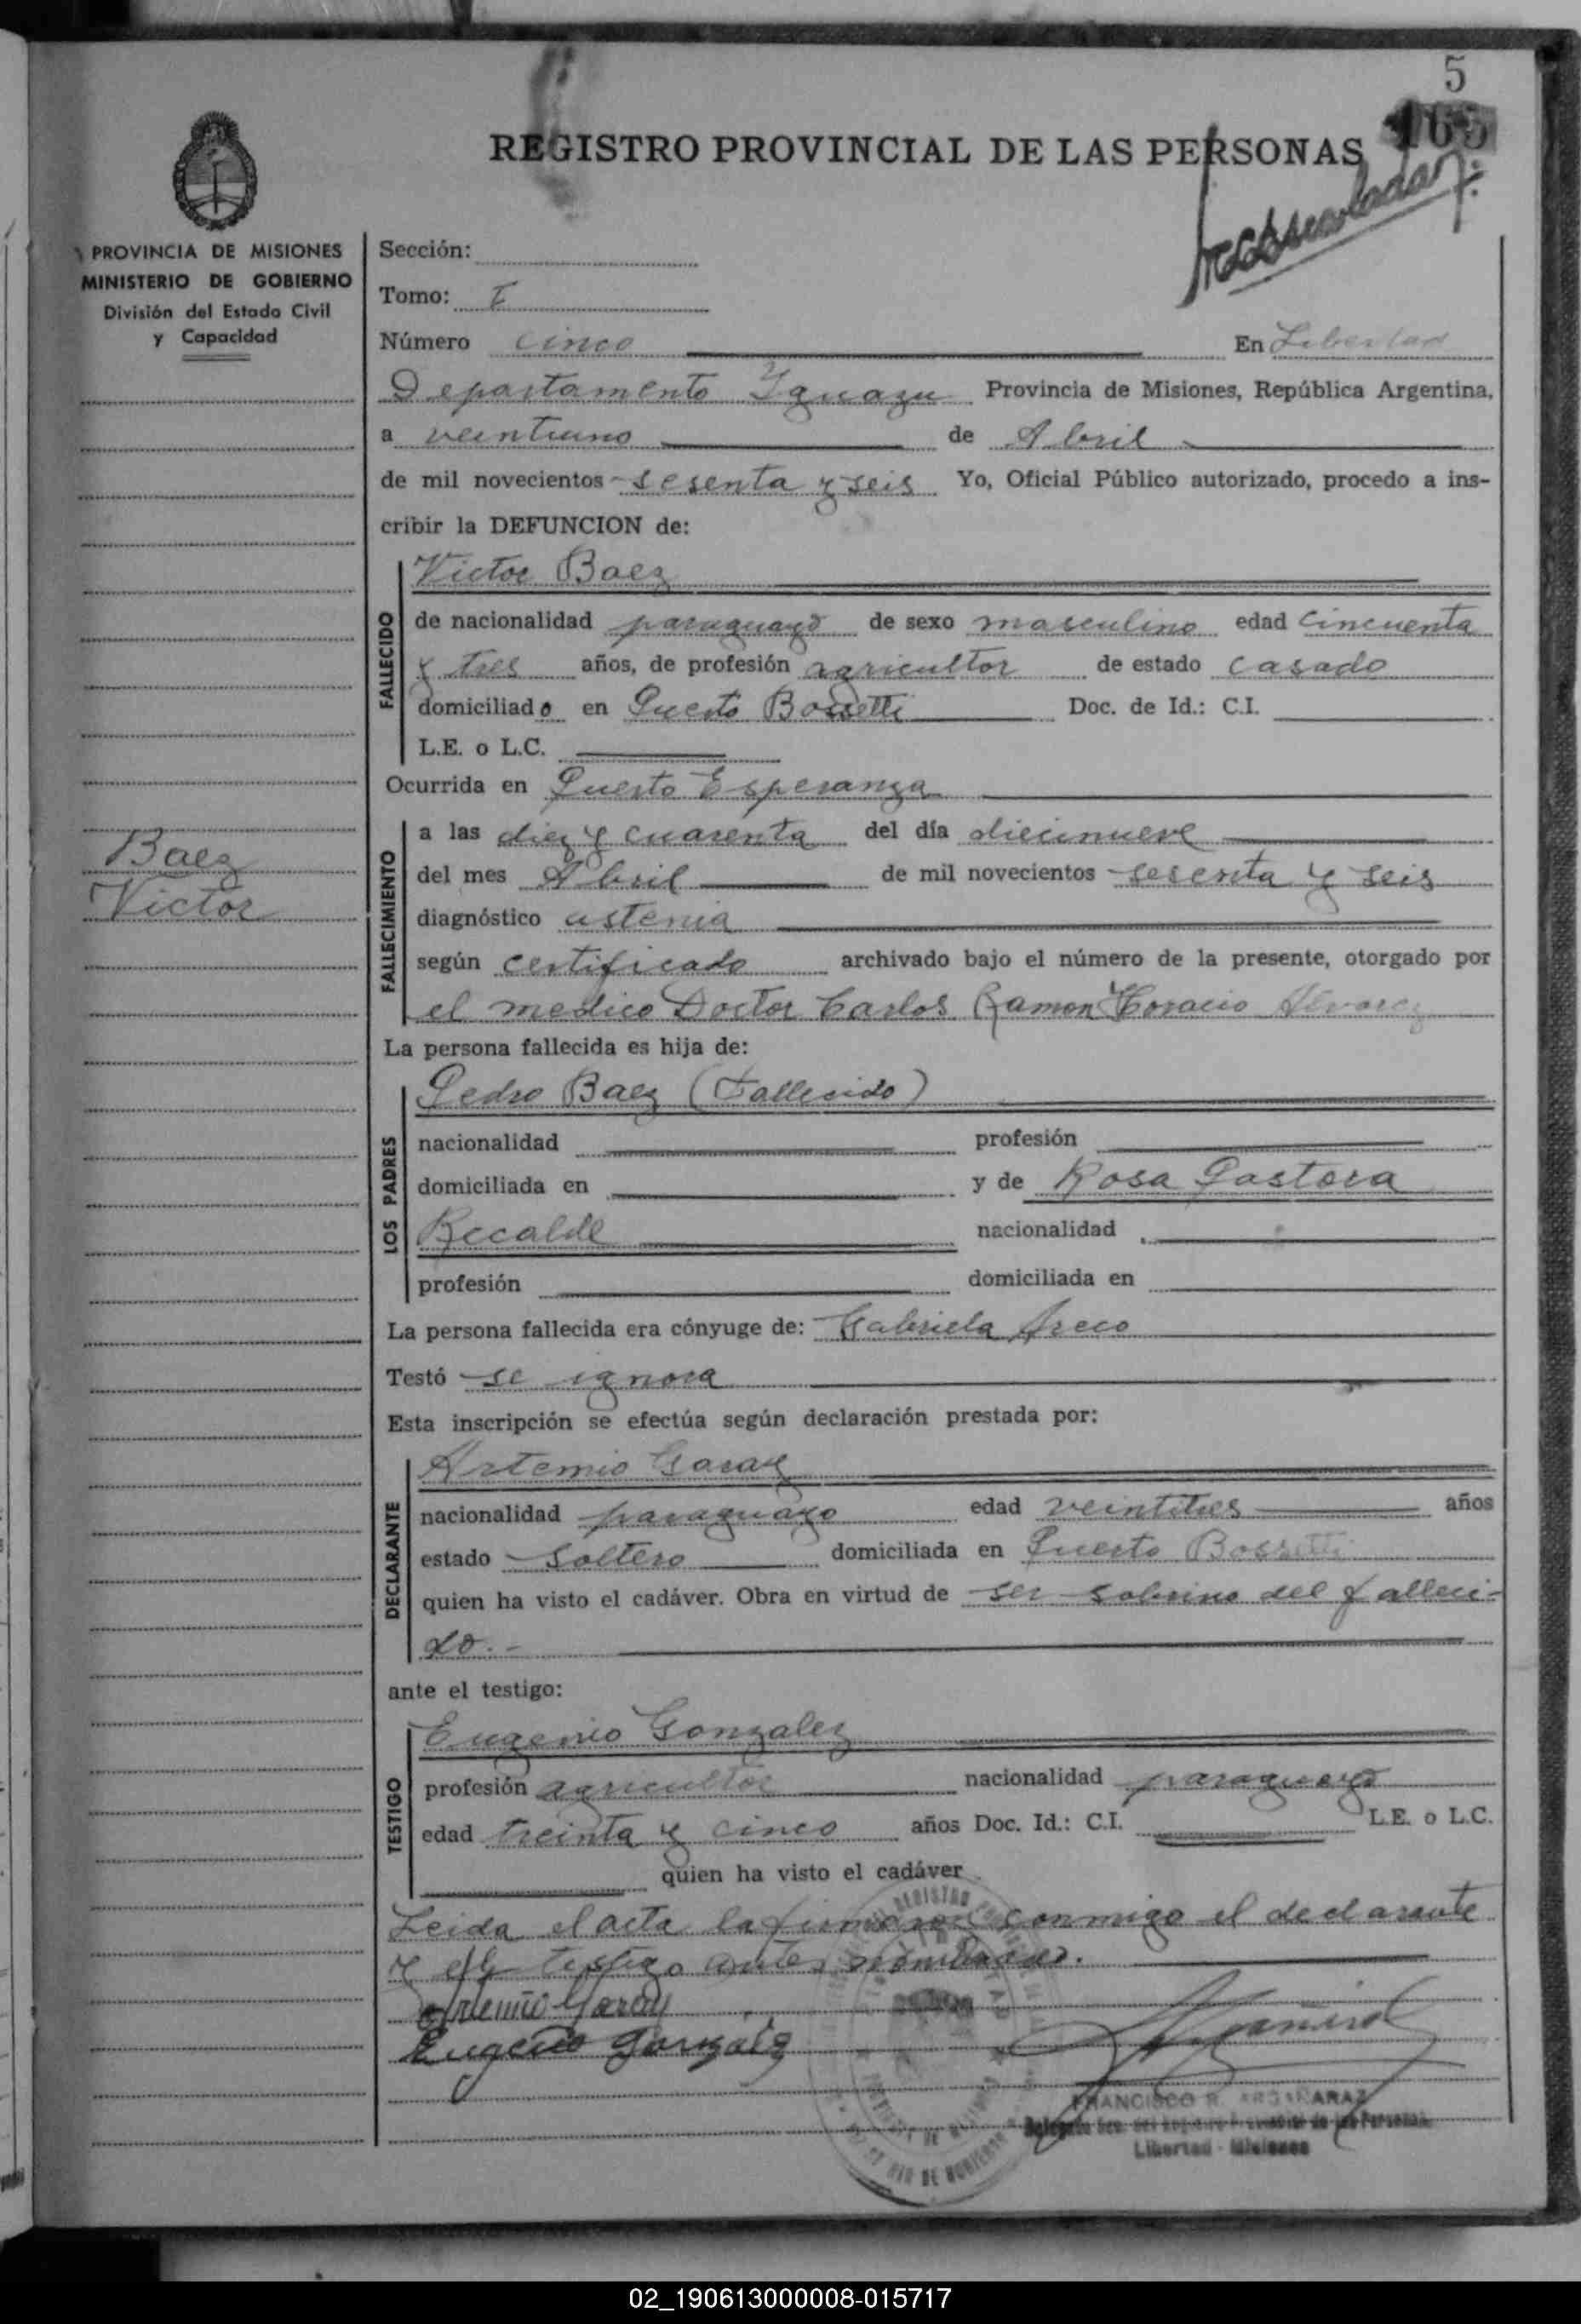 5
165
REGISTRO PROVINCIAL DE LAS PERSONAS
PROVINCIA DE MISIONES
MINISTERIO DE GOBIERNO
División del Estado Civil
y Capacidad
Baez
Victor
Sección:
Tomo: I
Número cinco En Libertad
Departamento Iguazu Provincia de Misiones, República Argentina,
a veintiuno de Abril
de mil novecientos sesenta y seis Yo, Oficial Público autorizado, procedo a ins-
cribir la DEFUNCION de:
FALLECIDO
Victor Baez
de nacionalidad paraguayo de sexo masculino edad cincuenta
y tres años, de profesión agricultor de estado casado
domiciliado en Puerto Bossetti Doc. de Id.: C.I.
L.E. o L.C.
Ocurrida en Puerto Esperanza
FALLECIMIENTO
a las diez y cuarenta del día diecinueve
del mes Abril de mil novecientos sesenta y seis
diagnóstico astenia
según certificado archivado bajo el número de la presente, otorgado por
el medico Doctor Carlos Ramon Horacio Alvarez
La persona fallecida es hija de:
LOS PADRES
Pedro Baez (Fallecido)
nacionalidad profesión
domiciliada en y de Rosa Pastora
Recalde nacionalidad
profesión domiciliada en
La persona fallecida era cónyuge de: Gabriela Areco
Testó se ignora
Esta inscripción se efectúa según declaración prestada por:
DECLARANTE
Artemio Garay
nacionalidad paraguayo edad veintitres años
estado soltero domiciliada en Puerto Bossetti
quien ha visto el cadáver. Obra en virtud de ser sobrino del falleci-
do.-
ante el testigo:
TESTIGO
Eugenio Gonzalez
profesión agricultor nacionalidad paraguayo
edad treinta y cinco años Doc. Id.: C.I. L.E. o L.C.
quien ha visto el cadáver
Leida el acta la firmaron conmigo el declarante
y el testigo antes nombrados.
Artemio Garay
Eugenio Gonzalez
FRANCISCO R. ARGAÑARAZ
Libertad - Misiones
02_190613000008-015717